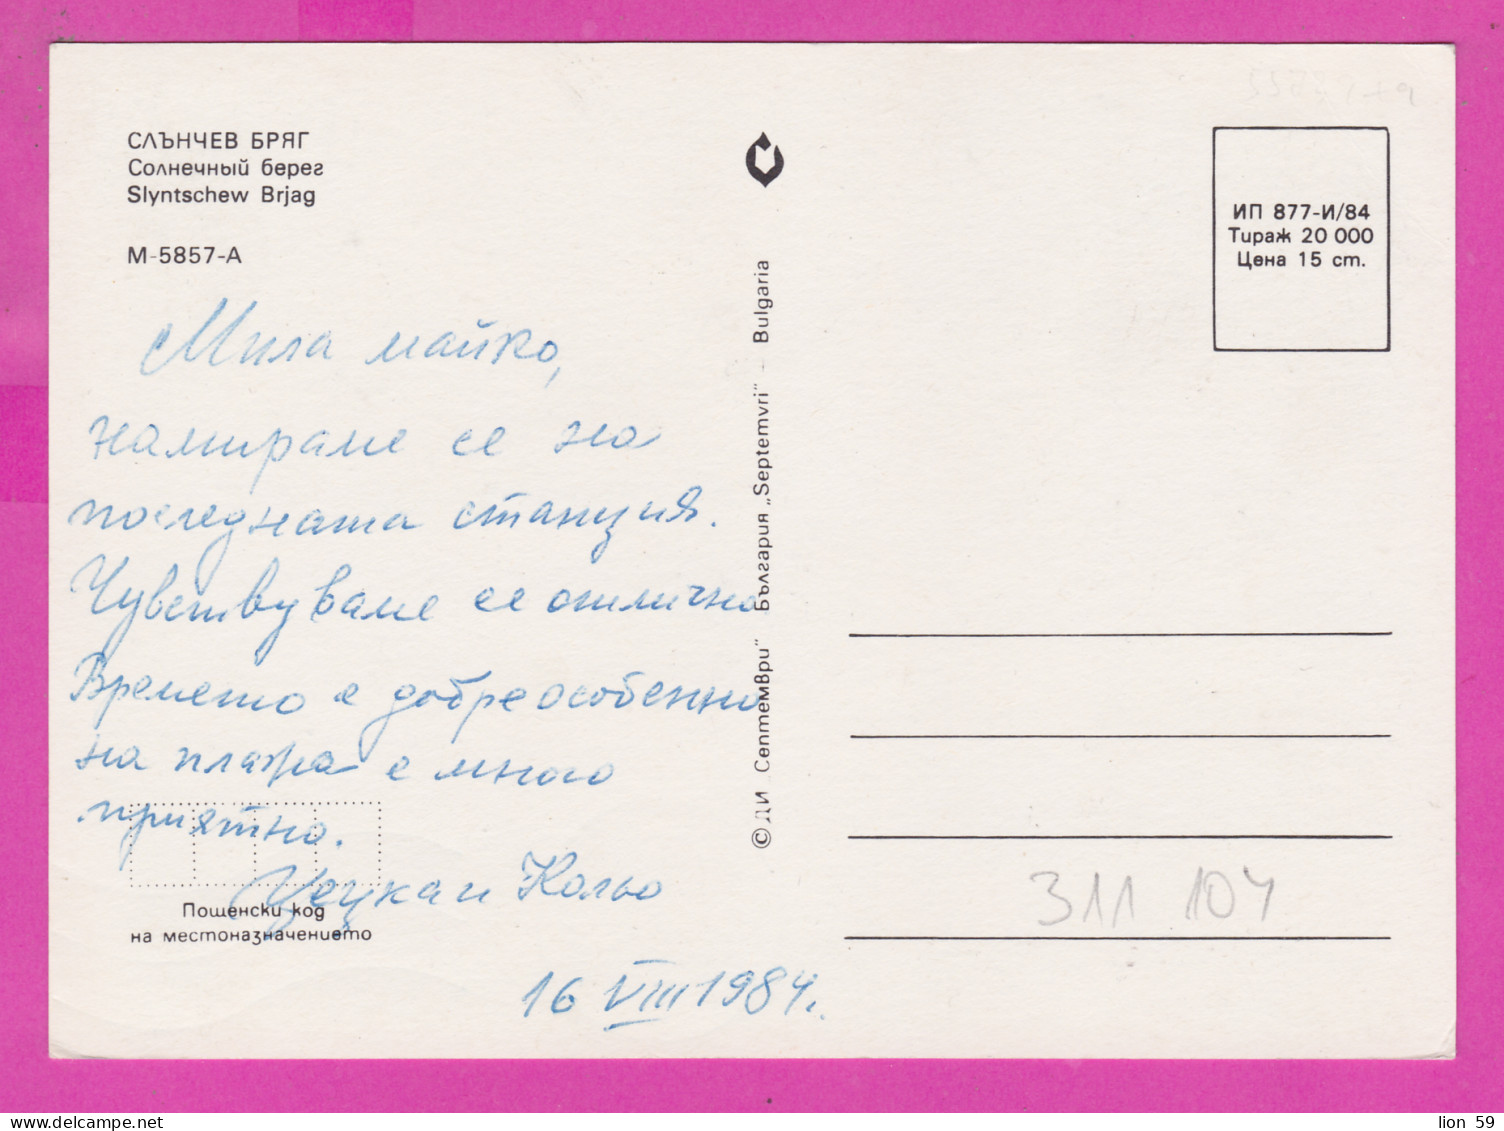 СЛЪНЧЕВ БРЯГ
Солнечный берег
Slyntschew Brjag
М-5857-А
Мила майко,
намираме се на
последната станция.
Чувствуваме се отлично
Времето е добре особенно
на плажа е много
приятно.
Цецка и Кольо
16 VIII 1984.
Пощенски код
на местоназначението
© ДИ „Септември" България „Septemvri" - Bulgaria
ИП 877-И/84
Тираж 20 000
Цена 15 ст.
311 104
lion 59